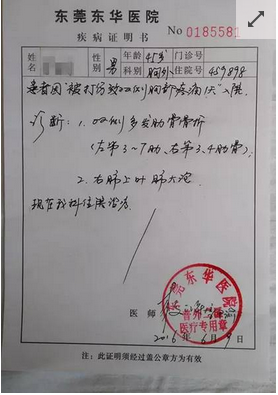 东莞东华医院
疾病证明书
No 0185581
姓名 性别 男 年龄 47岁 门诊号
科别 胸外 住院号 459898
患者因“被打伤致双侧胸部疼痛1天”入院
诊断：1.双侧多发肋骨骨折
（左第3~7肋、右第3、4肋骨）
2.右肺上叶肺大泡
现在我科住院治疗
东莞东华医院
医疗专用章
医师
2016年6月9日
注：此证明须经过盖公章方为有效